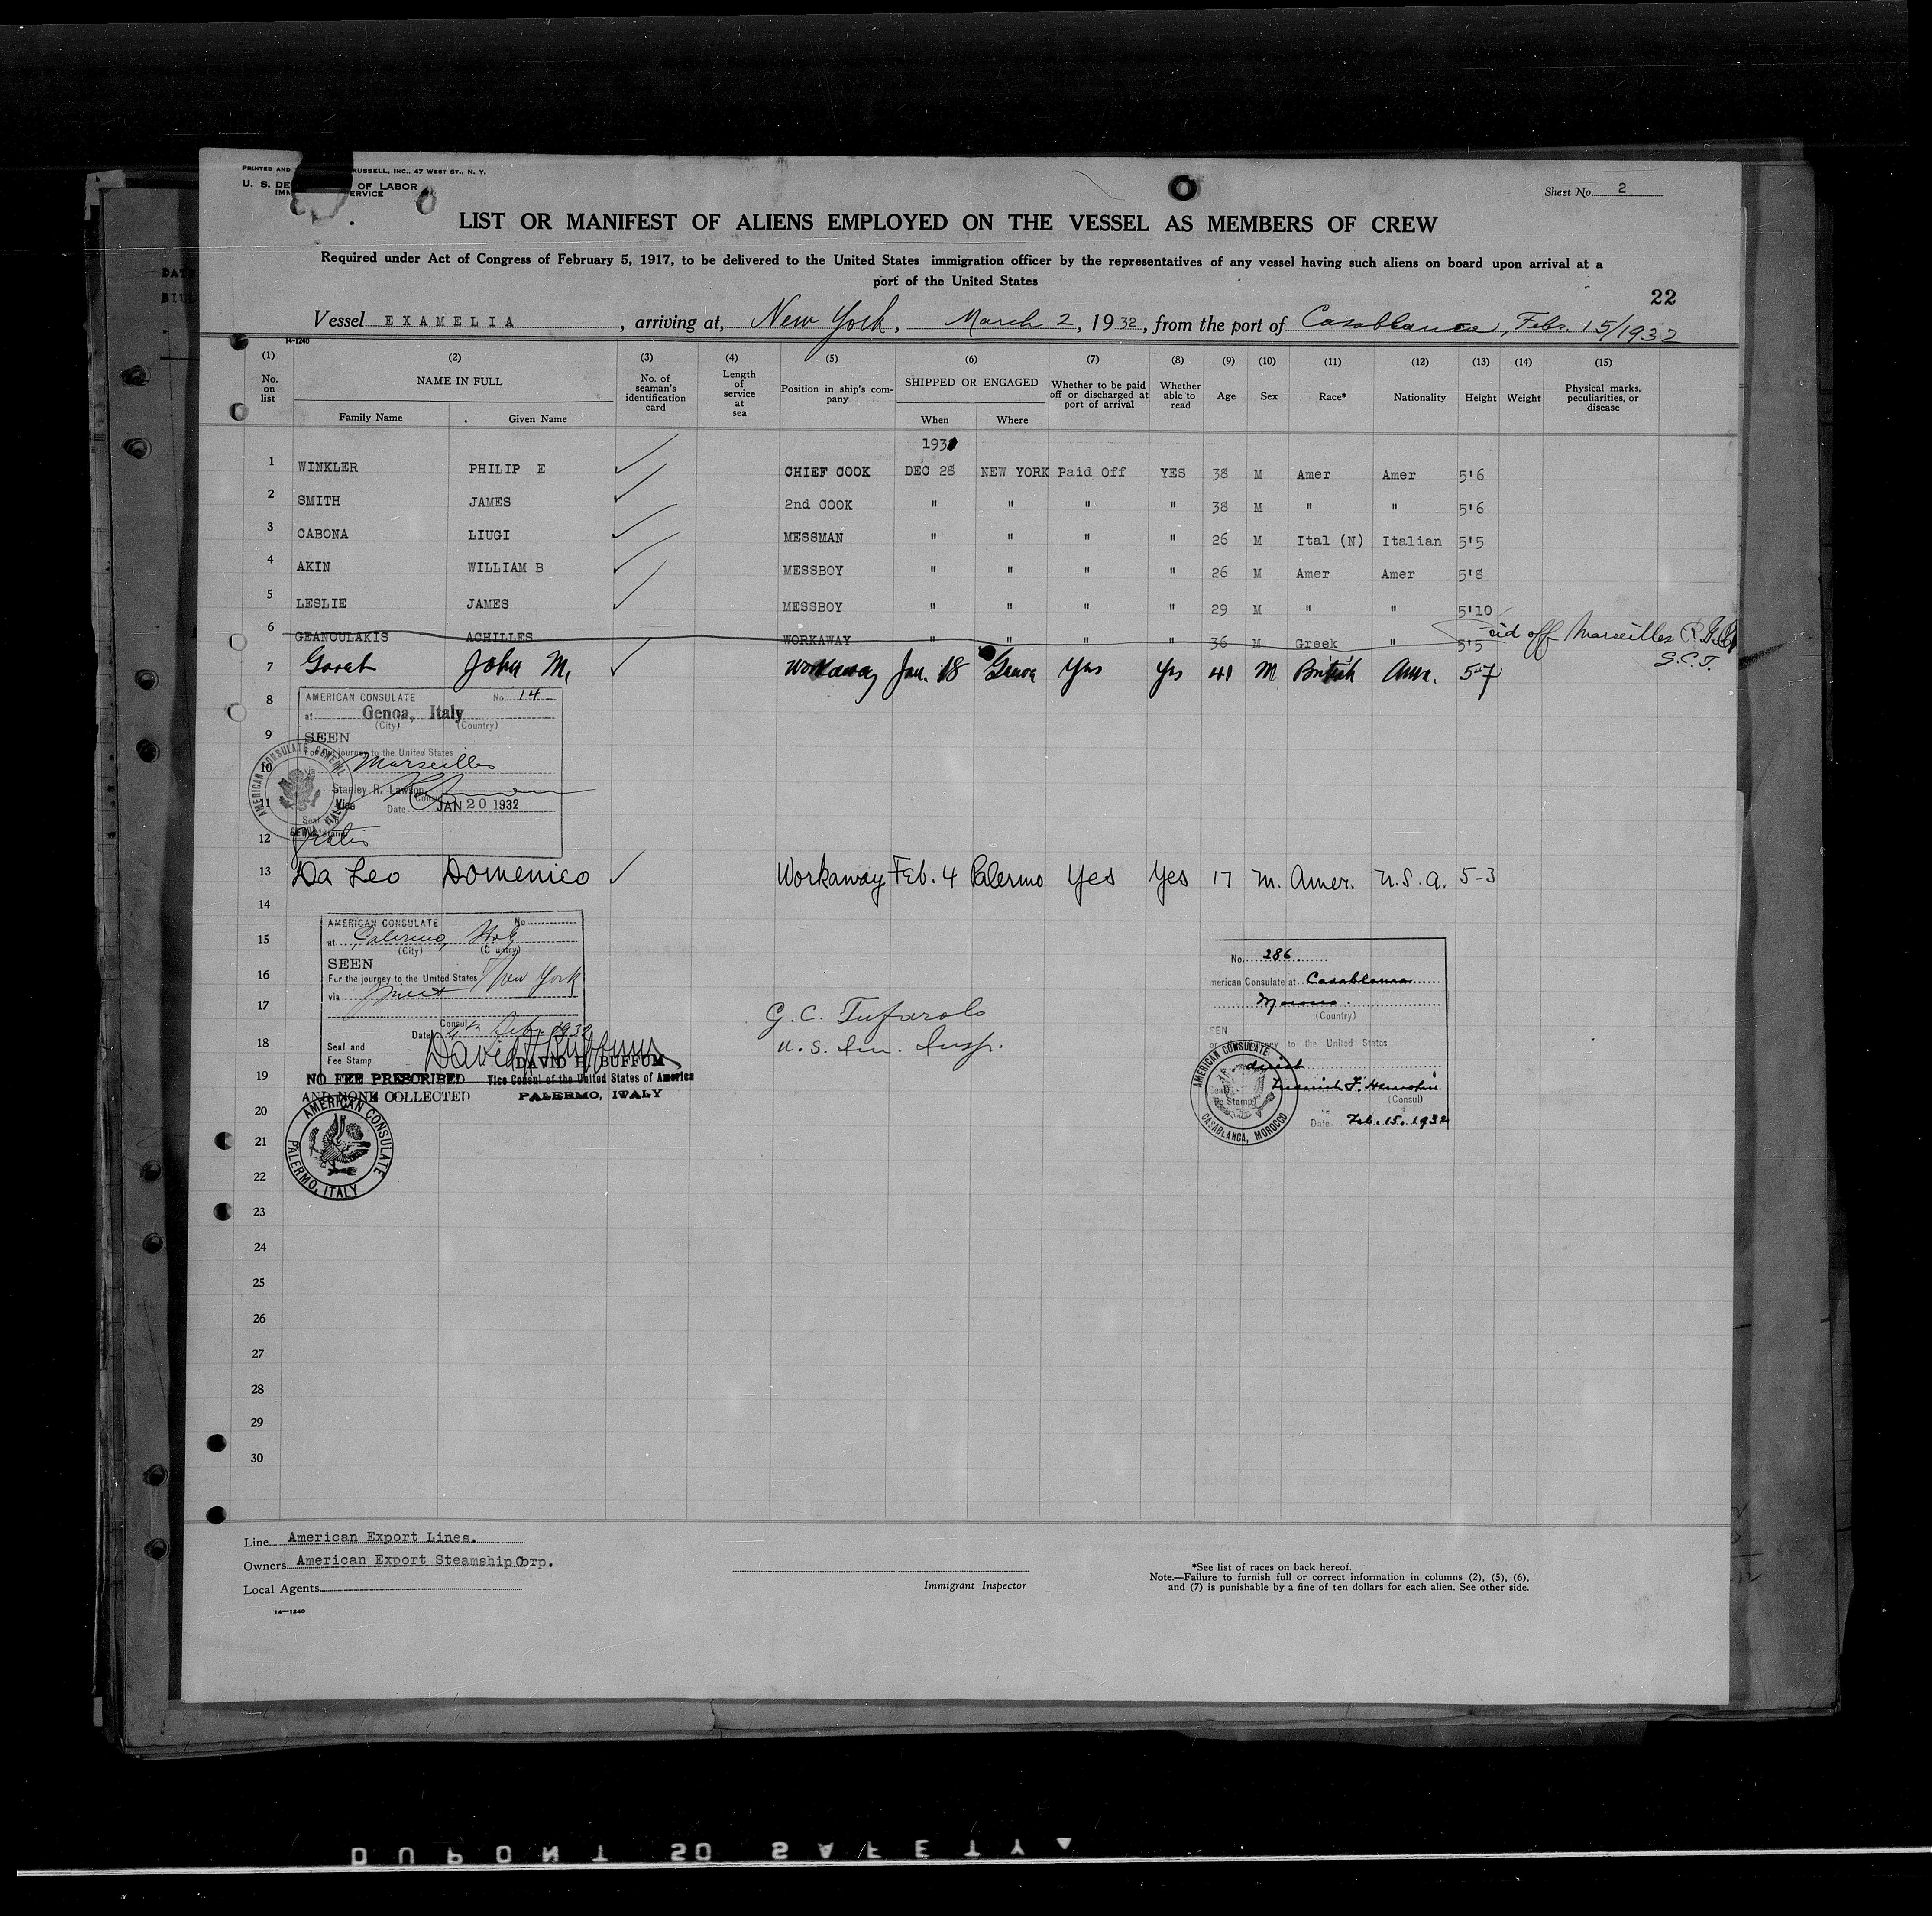 PRINTED AND RUSSELL, INC., 47 WEST ST., N. Y.
U. S. DE OF LABOR
IMM ERVICE
Sheet No. 2
LIST OR MANIFEST OF ALIENS EMPLOYED ON THE VESSEL AS MEMBERS OF CREW
Required under Act of Congress of February 5, 1917, to be delivered to the United States immigration officer by the representatives of any vessel having such aliens on board upon arrival at a
port of the United States
22
Vessel EXAMELIA, arriving at, New York, March 2, 1932, from the port of Casablanca, Febr. 15/1932
14-1240
(1) (2) (3) (4) (5) (6) (7) (8) (9) (10) (11) (12) (13) (14) (15)
No. on list
NAME IN FULL
Family Name Given Name
No. of seaman's identification card
Length of service at sea
Position in ship's company
SHIPPED OR ENGAGED
When Where
Whether to be paid off or discharged at port of arrival
Whether able to read
Age Sex Race* Nationality Height Weight
Physical marks, peculiarities, or disease
1931
1 WINKLER PHILIP E CHIEF COOK DEC 28 NEW YORK Paid Off YES 38 M Amer Amer 5'6
2 SMITH JAMES 2nd COOK " " " " 38 M " " 5'6
3 CABONA LIUGI MESSMAN " " " " 26 M Ital (N) Italian 5'5
4 AKIN WILLIAM B MESSBOY " " " " 26 M Amer Amer 5'8
5 LESLIE JAMES MESSBOY " " " " 29 M " " 5'10
6 GEANOULAKIS ACHILLES WORKAWAY " " " " 36 M Greek " 5'5 Paid off Marseilles
G.C.T.
7 John M. Workaway Jan. 18 Genoa Yes Yes 41 M British Amer. 5-7
8
AMERICAN CONSULATE No. 14
at Genoa, Italy
(City) (Country)
9
SEEN
For the journey to the United States
10
via Marseilles
Stanley R. Lawson
11
Vice Consul
Date JAN 20 1932
Seal
AMERICAN CONSULATE GENERAL
GENOA, ITALY
12
Gratis
13 Da Leo Domenico Workaway Feb. 4 Palermo Yes Yes 17 M. Amer. U.S.A. 5-3
14
AMERICAN CONSULATE No
15
at Palermo, Italy
(City) (Country)
16
SEEN
For the journey to the United States New York
via direct
17
Consul
Date 4th Feby 1932
18
Seal and
Fee Stamp
DAVID H. BUFFUM
19
NO FEE PRESCRIBED Vice Consul of the United States of America
AND NONE COLLECTED PALERMO, ITALY
AMERICAN CONSULATE
PALERMO, ITALY
G. C. Tufarolo
U. S. Im. Insp.
No. 286
merican Consulate at Casablanca
Morocco.
(Country)
EEN
or y to the United States
direct
(Consul)
Stamp
Date Feb. 15. 1932
AMERICAN CONSULATE
CASABLANCA, MOROCCO
20
21
22
23
24
25
26
27
28
29
30
Line American Export Lines.
Owners American Export Steamship Corp.
Local Agents
14—1240
Immigrant Inspector
*See list of races on back hereof.
Note.—Failure to furnish full or correct information in columns (2), (5), (6),
and (7) is punishable by a fine of ten dollars for each alien. See other side.
DUPONT SO SAFETY